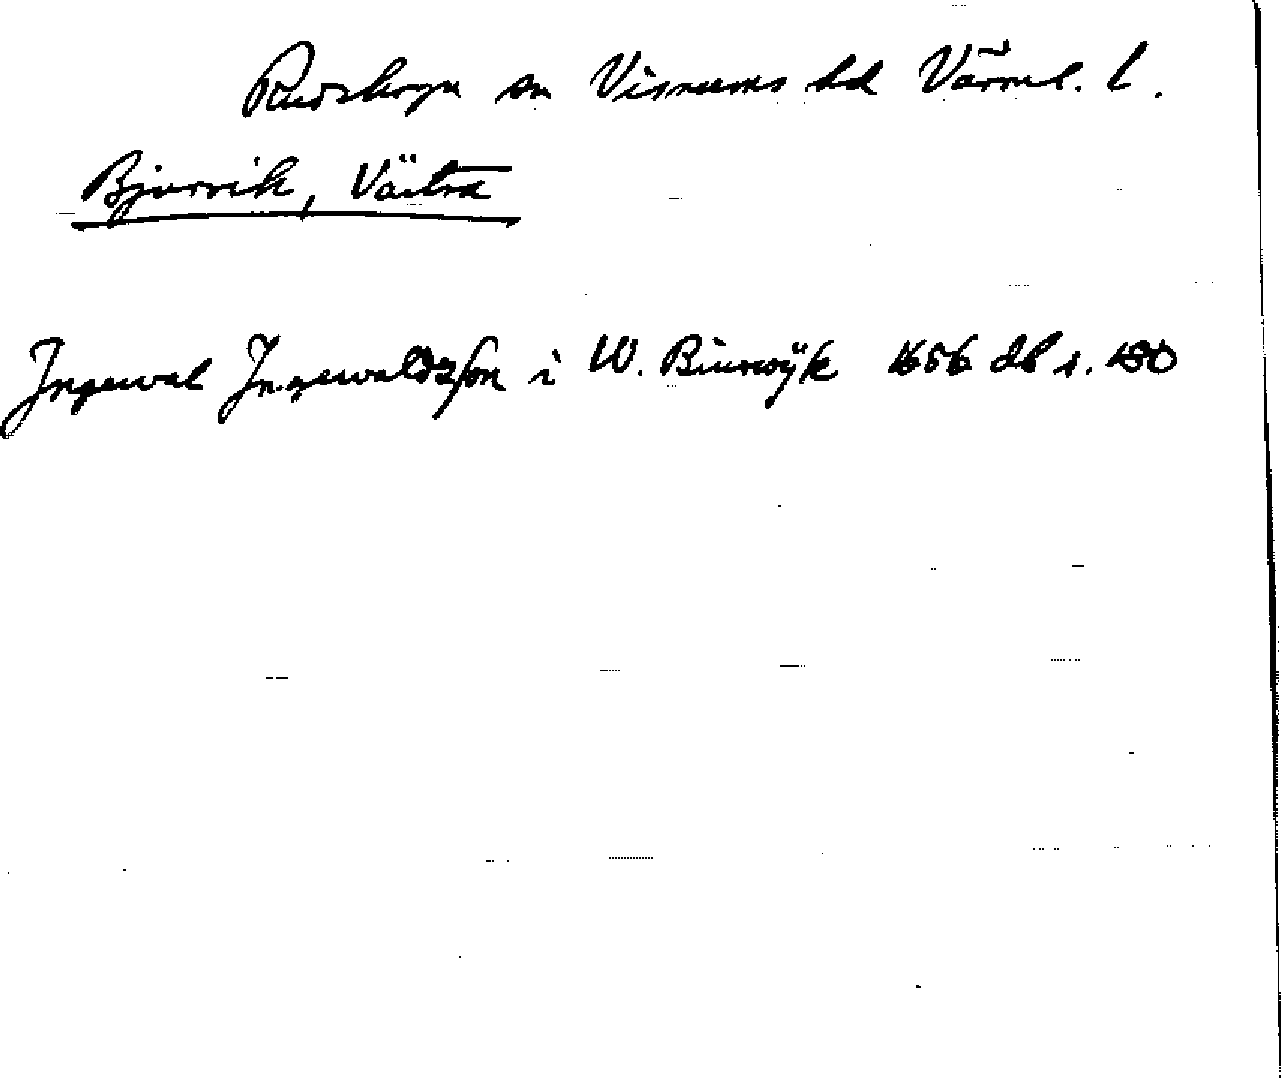 Rudskoga sn Visnums hd Värml. l.
Bjurvik, Västra
Ingewal Ingewaldzson i W. Biurwÿk 1656 db s. 130